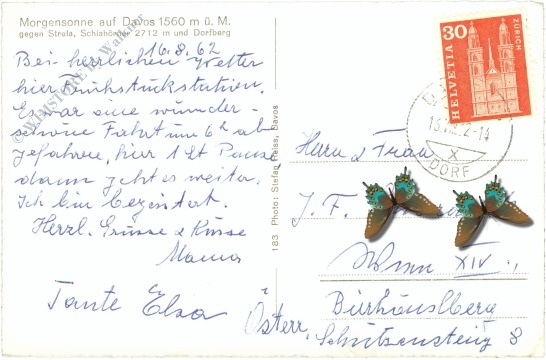 Morgensonne auf Davos 1560 m ü. M.
gegen Strela, Schiahörner 2712 m und Dorfberg
16.8.62
Bei herrlichen Wetter
hier Frühstückstation.
Es war eine wunder-
schöne Fahrt um 6h ab
gefahren, hier 1 St Pause
dann geht es weiter.
Ich bin begeistert.
Herzl. Grüsse & Küsse
Mama
Tante Elsa
183 Photo: Stefan Heiss, Davos
30
HELVETIA
ZÜRICH
DORF
Herrn & Frau
J. F.
Wien XIV.,
Österr.